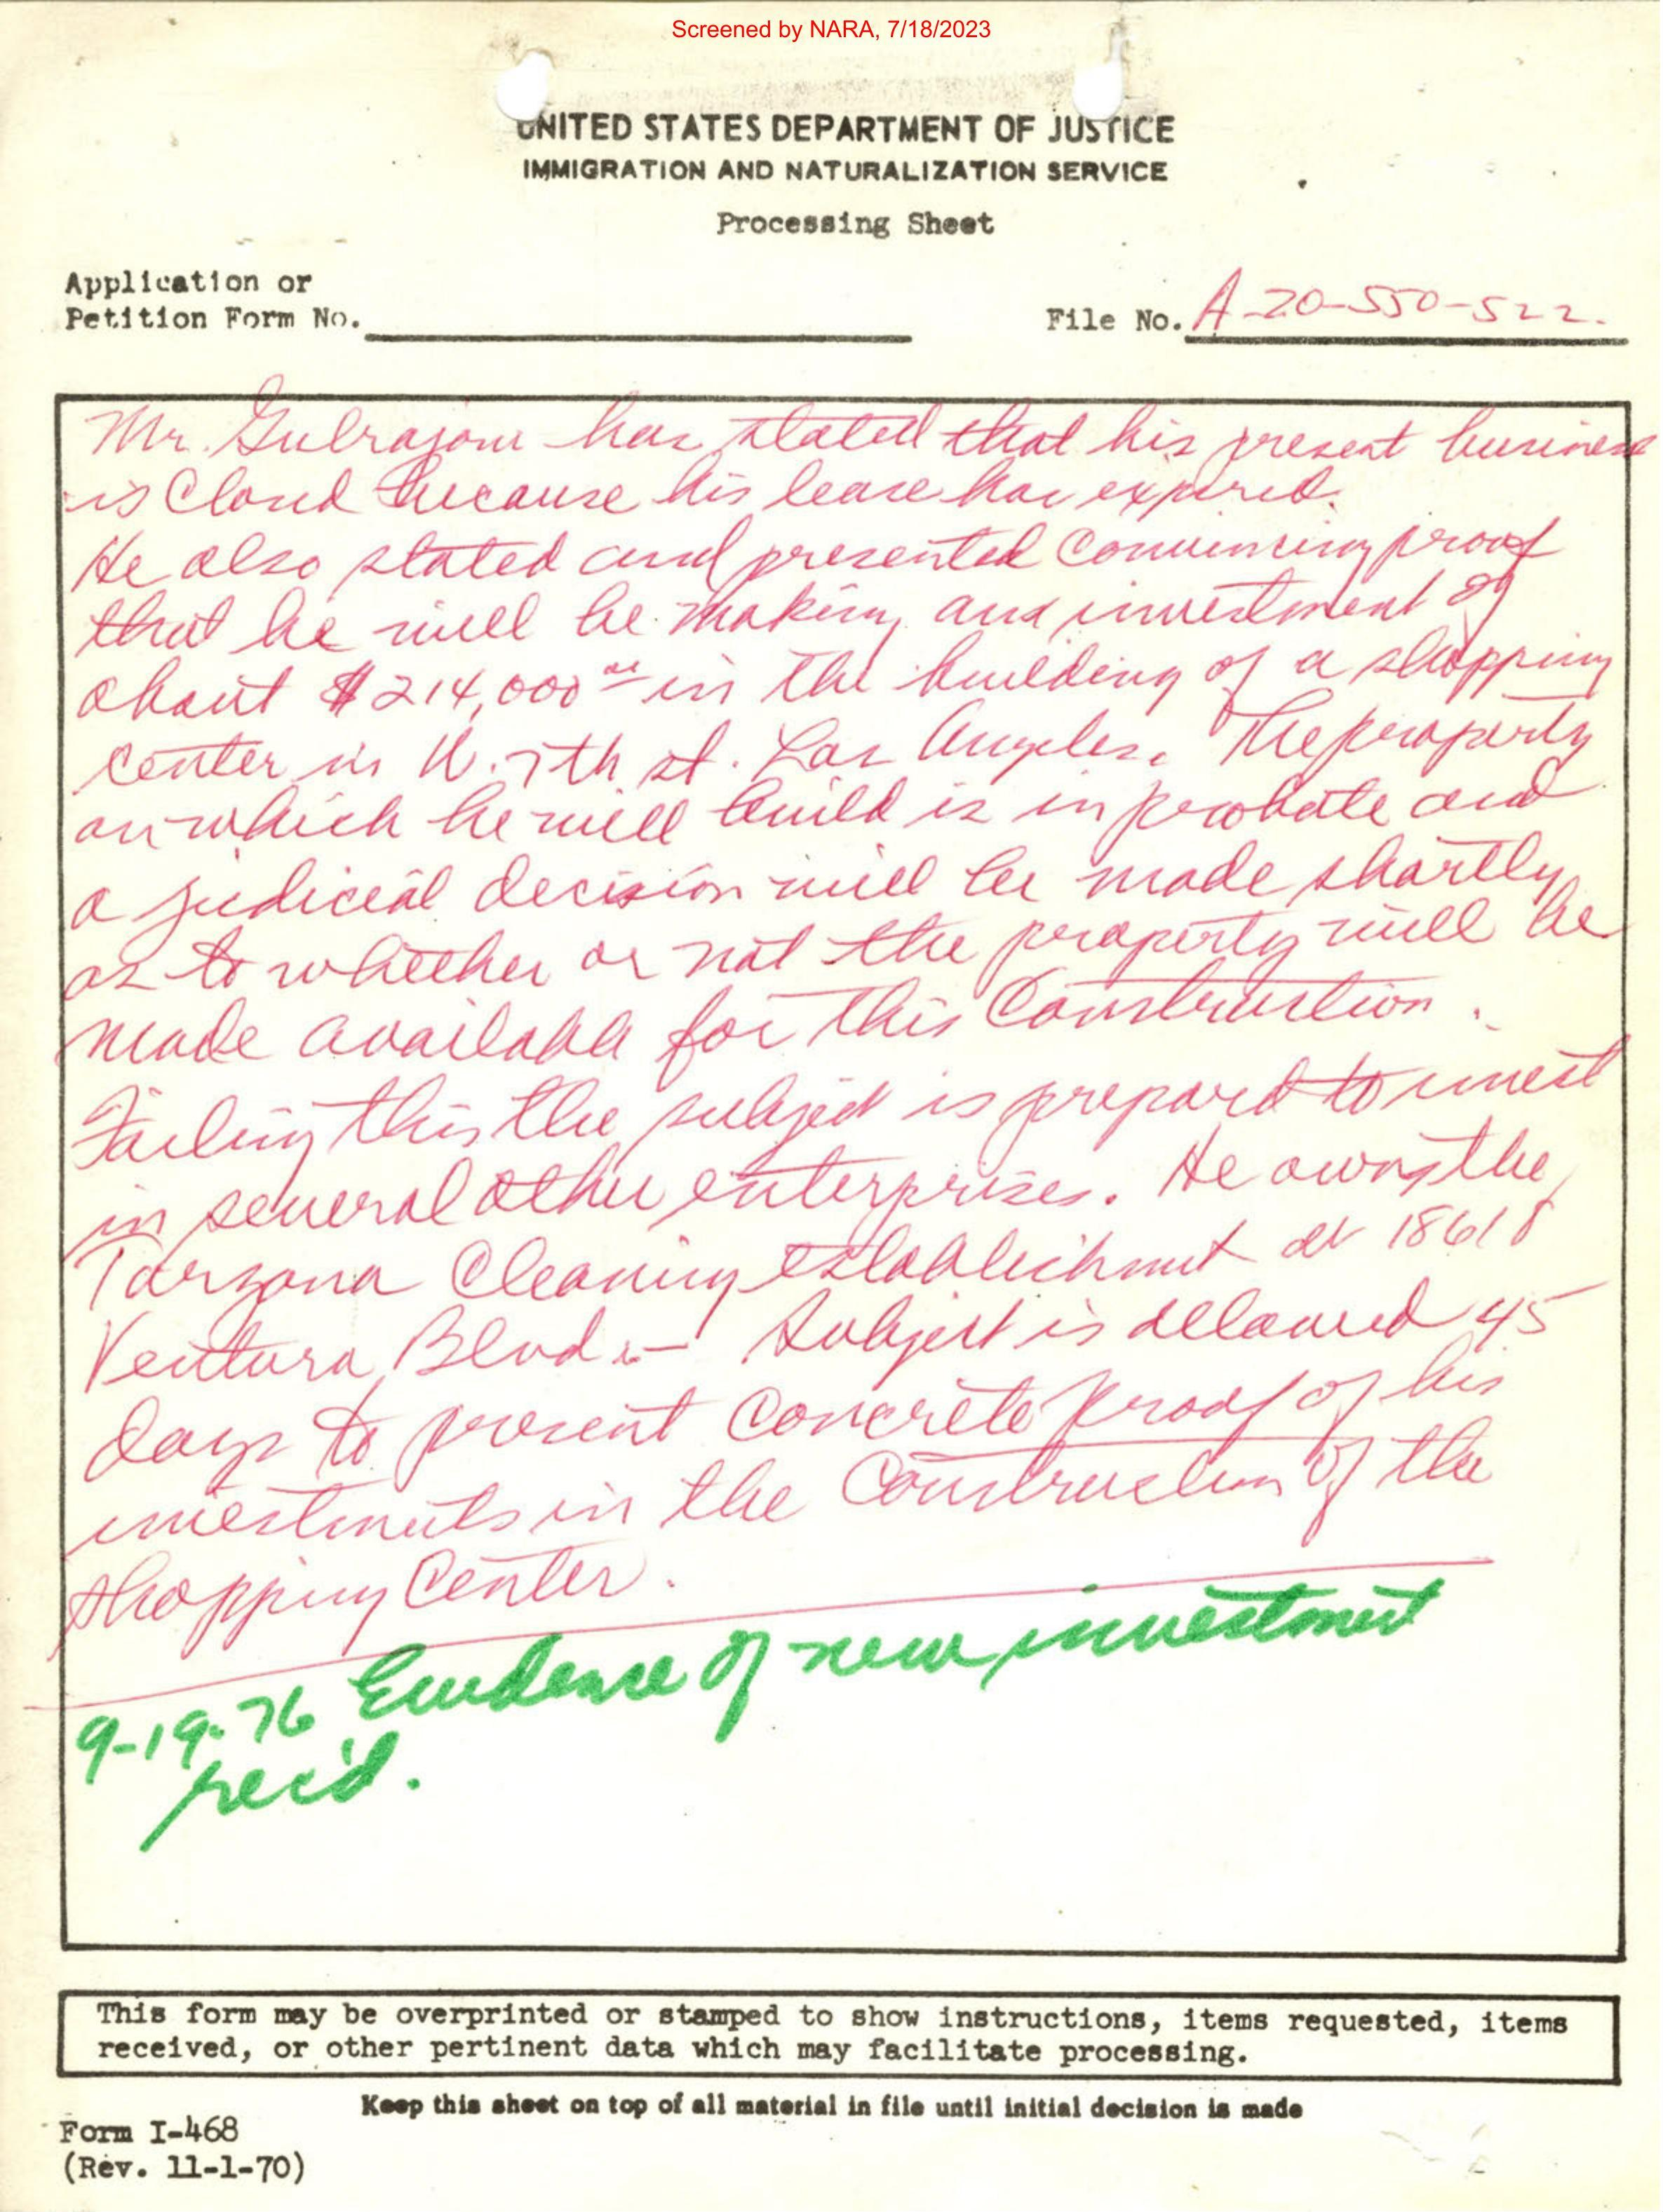 Screened by NARA, 7/18/2023
UNITED STATES DEPARTMENT OF JUSTICE
IMMIGRATION AND NATURALIZATION SERVICE
Processing Sheet
Application or
Petition Form No.
File No. A-20-550-522.
Mr. Gulrajani has stated that his present business
is Closed because his lease has expired.
He also stated and presented convincing proof
that he will be making and investment of
about $214,000 in the building of a shopping
center in W. 7th st. Los Angeles. The property
on which he will build is in probate and
a judicial decision will be made shortly
as to whether or not the property will be
made available for this Construction.
Failing this the subject is prepared to invest
in several other enterprises. He owns the
Tarzana Cleaning establishment at 18618
Ventura Blvd. — Subject is allowed 45
days to present concrete proof of his
investments in the Construction of the
shopping Center.
9-19-76 Evidense of new investment
rec'd.
This form may be overprinted or stamped to show instructions, items requested, items
received, or other pertinent data which may facilitate processing.
Keep this sheet on top of all material in file until initial decision is made
Form I-468
(Rev. 11-1-70)